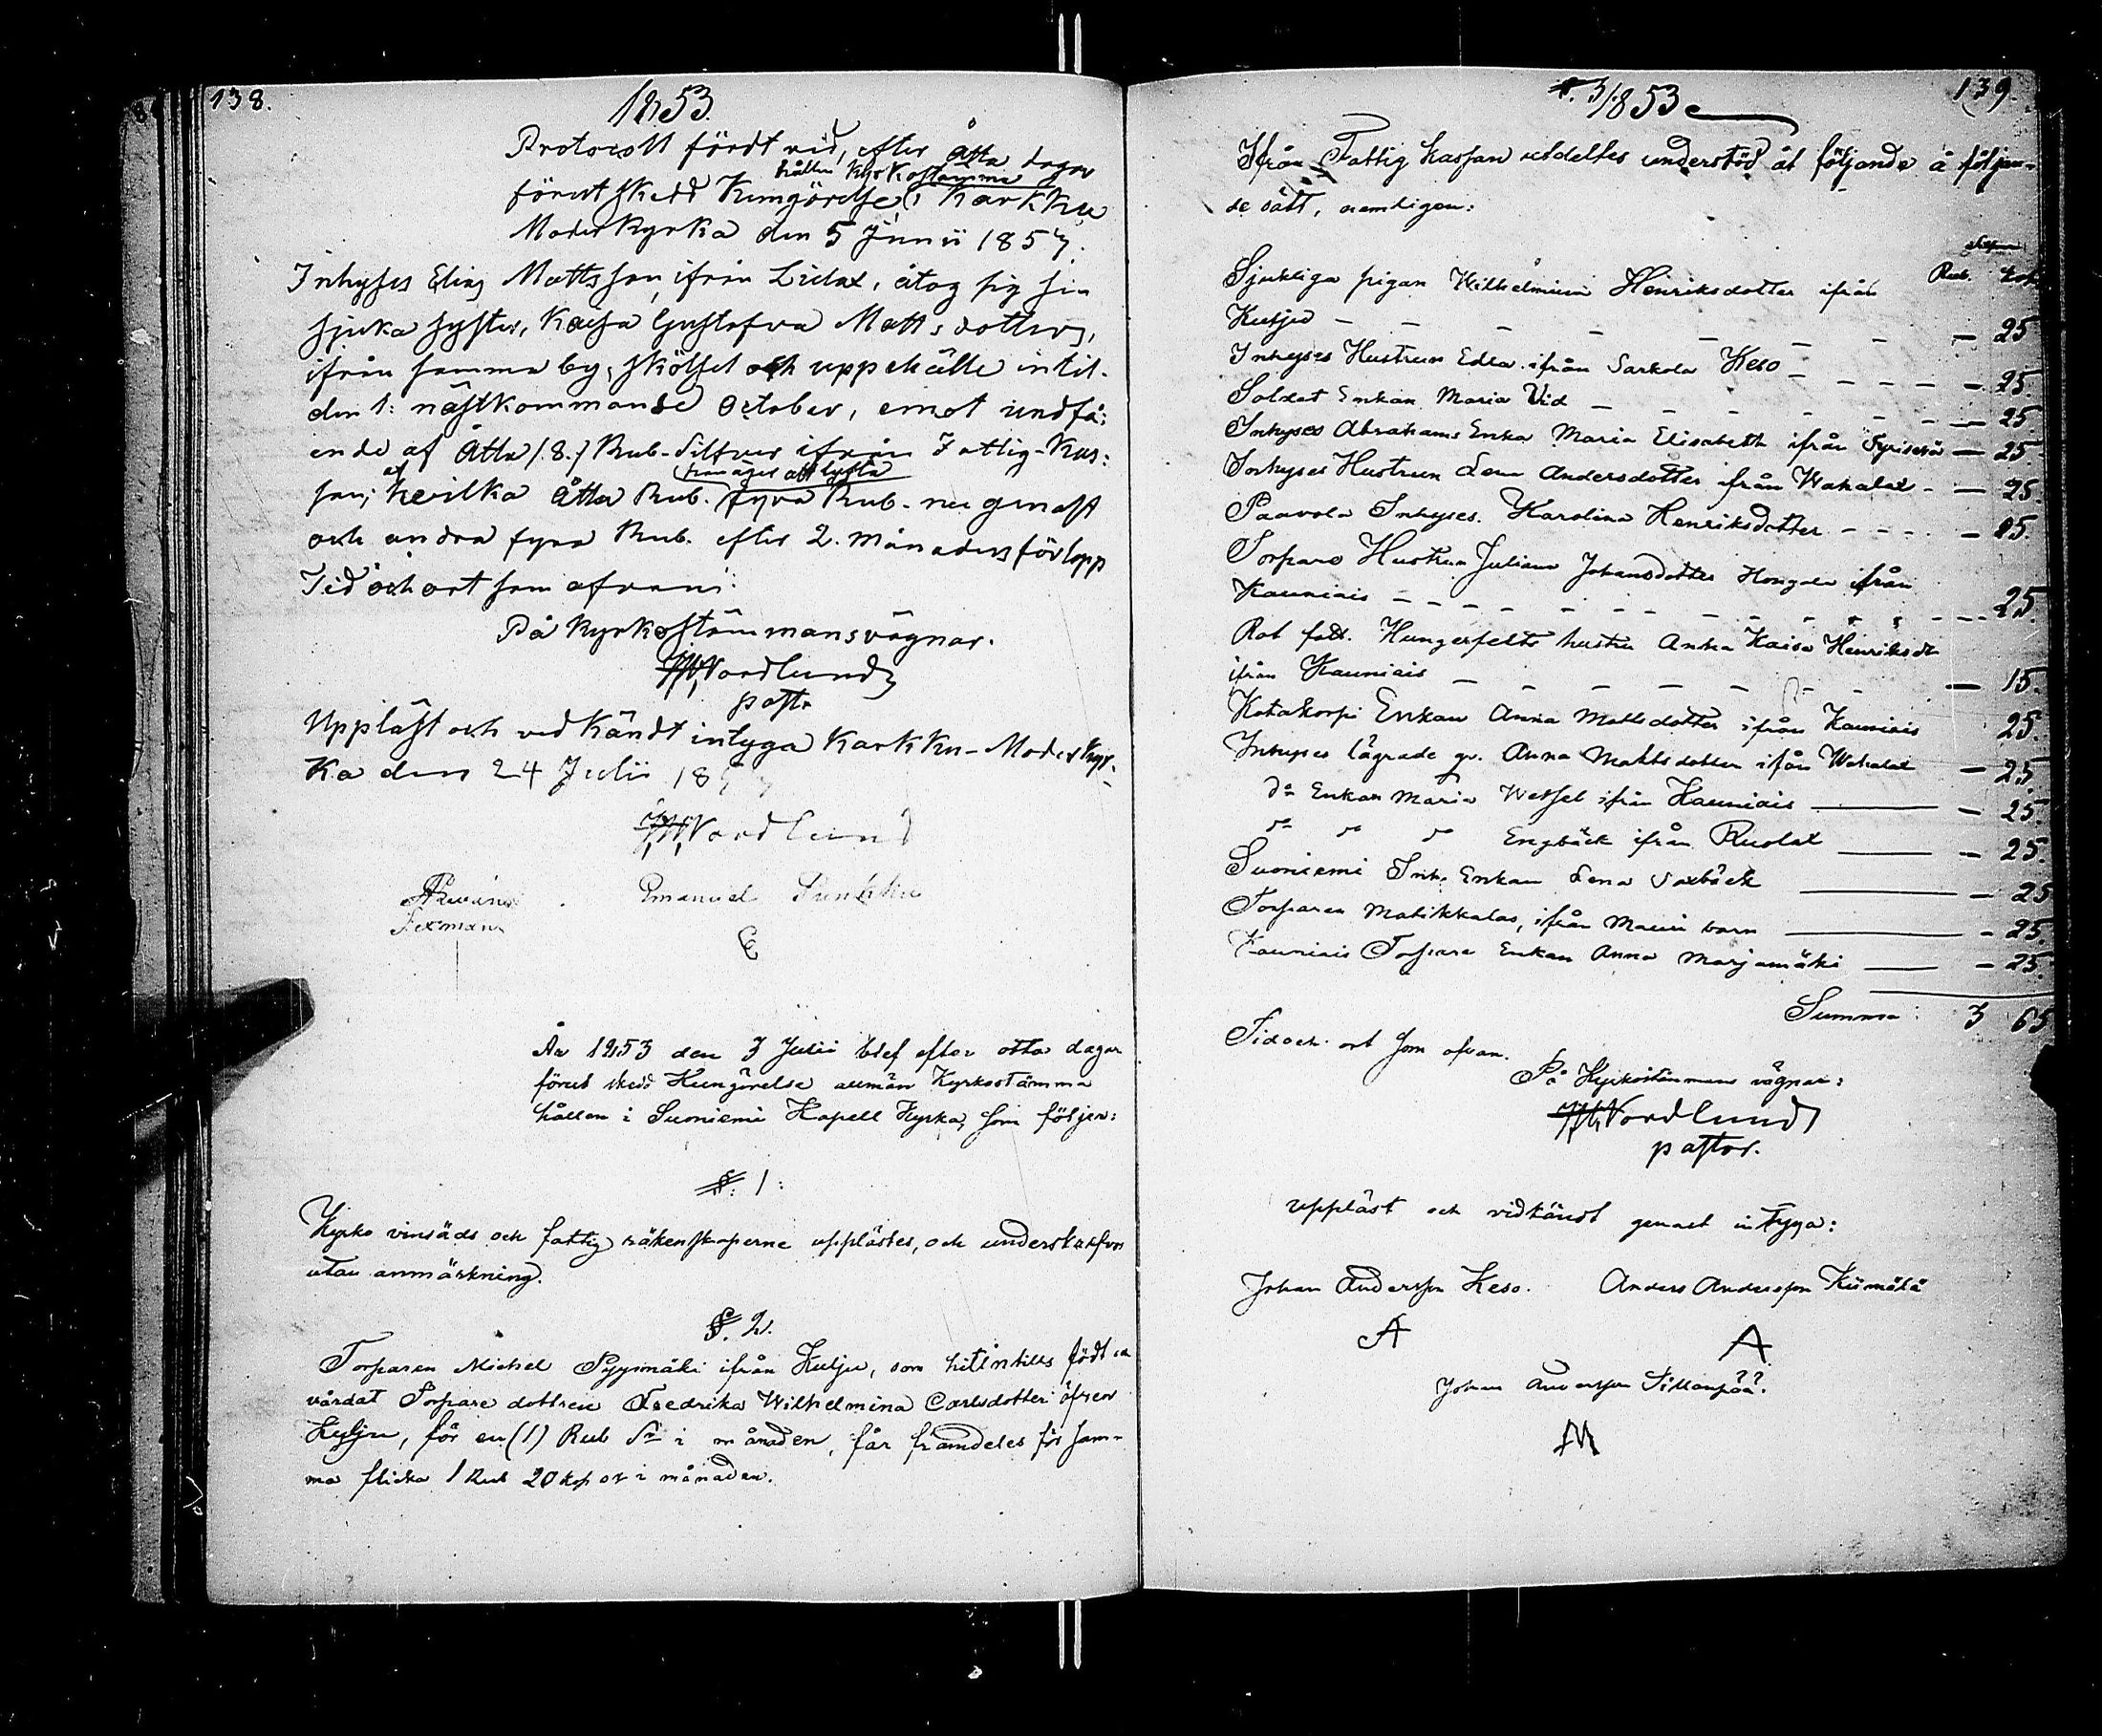 138.
1853.
Protocoll fördt vid, efter åtta dagar
förut skedd Kungörelse, hållen Kyrkostämma i Karkku
Moderkyrka den 5 Junii 1853.
Inhyses Elias Mattsson, ifrån Lielax, åtog sig sin
sjuka syster, Kaisa Gustafva Mattsdotters,
ifrån samma by, skötsel och uppehälle intil
den 1: nästkommande October, emot undfå:
ende af Åtta /8./ Rub. Silfver ifrån Fattig-Kas:
san; af hvilka åtta Rub. han äger att lyfta fyra Rub. nu genast
och andra fyra Rub. efter 2. månaders förlopp
Tid och ort som ofvan:
På Kyrkostämmans vägnar.
Nordlund
past:
Uppläst och vedkändt intyga Karkku-Moderkyr-
ka den 24 Julii 18
Nordlund
Emanuel
Sexman
År 1853 den 3 Julii blef efter otta dagar
förut skedd Kungörelse allmän Kyrkostämma
hållen i Suoniemi Kapell Kyrka, som följer:
§. 1:
Kyrko vinsäds och fattig räkenskaperne upplästes, och underskrefvos
utan anmärkning.
§. 2.
Torparen Michel Pyymäki ifrån Kulju, som hitintills födt och
vårdat Torpare dottren Fredrika Wilhelmina Carlsdotter öfver
Kulju, för en (1) Rub Sr i månaden, får framdeles för sam-
ma flicka 1 Rub 20 kop sr i månaden.
139.
§. 3/1853
Ifrån Fattig kassan utdeltes understöd åt följande å följan-
de sätt, nemligen:
Silfver
Rub. Kop
Sjukliga pigan Wilhelmina Henriksdotter ifrån
Kulju — 25
Inhyses Hustrun Edla ifrån Sarkola Keso — 25.
Soldat Enkan Maria Vid — 25.
Inhyses Abrahams Enka Maria Elisabeth ifrån — 25.
Inhyses Hustrun Lena Andersdotter ifrån Wahalax — 25.
Paavola Inhyses Karolina Henriksdotter — 25.
Torpare Hustrun Juliana Johansdotter Hongola ifrån
Kauniais — 25.
Rot sold. Hungerfelts hustru Anna Kaisa Henriksdr
ifrån Kauniais — 15.
Katakorpi Enkan Anna Mattsdotter ifrån Kauniais 25.
Inhyses lägrade qv. Anna Mattsdotter ifrån Wahalax — 25.
Do Enkan Maria Wessel ifrån Kauniais — 25.
do do do Engbäck ifrån Ruolax — 25.
Suoniemi Inh. Enkan Lena Saxbäck — 25
Torparen Matikkalas, ifrån Mauri barn — 25.
Kauniais Torpare Enkan Anna Marjamäki — 25.
Summa: 3 65
Tid och ort som ofvan.
På Kyrkostämmans vägnar:
Nordlund
pastor.
Uppläst och vidkändt genast intyga:
Johan Andersson Keso. Anders Andersson Kümälä
A A
Johan Andersson Sillanpää.
M